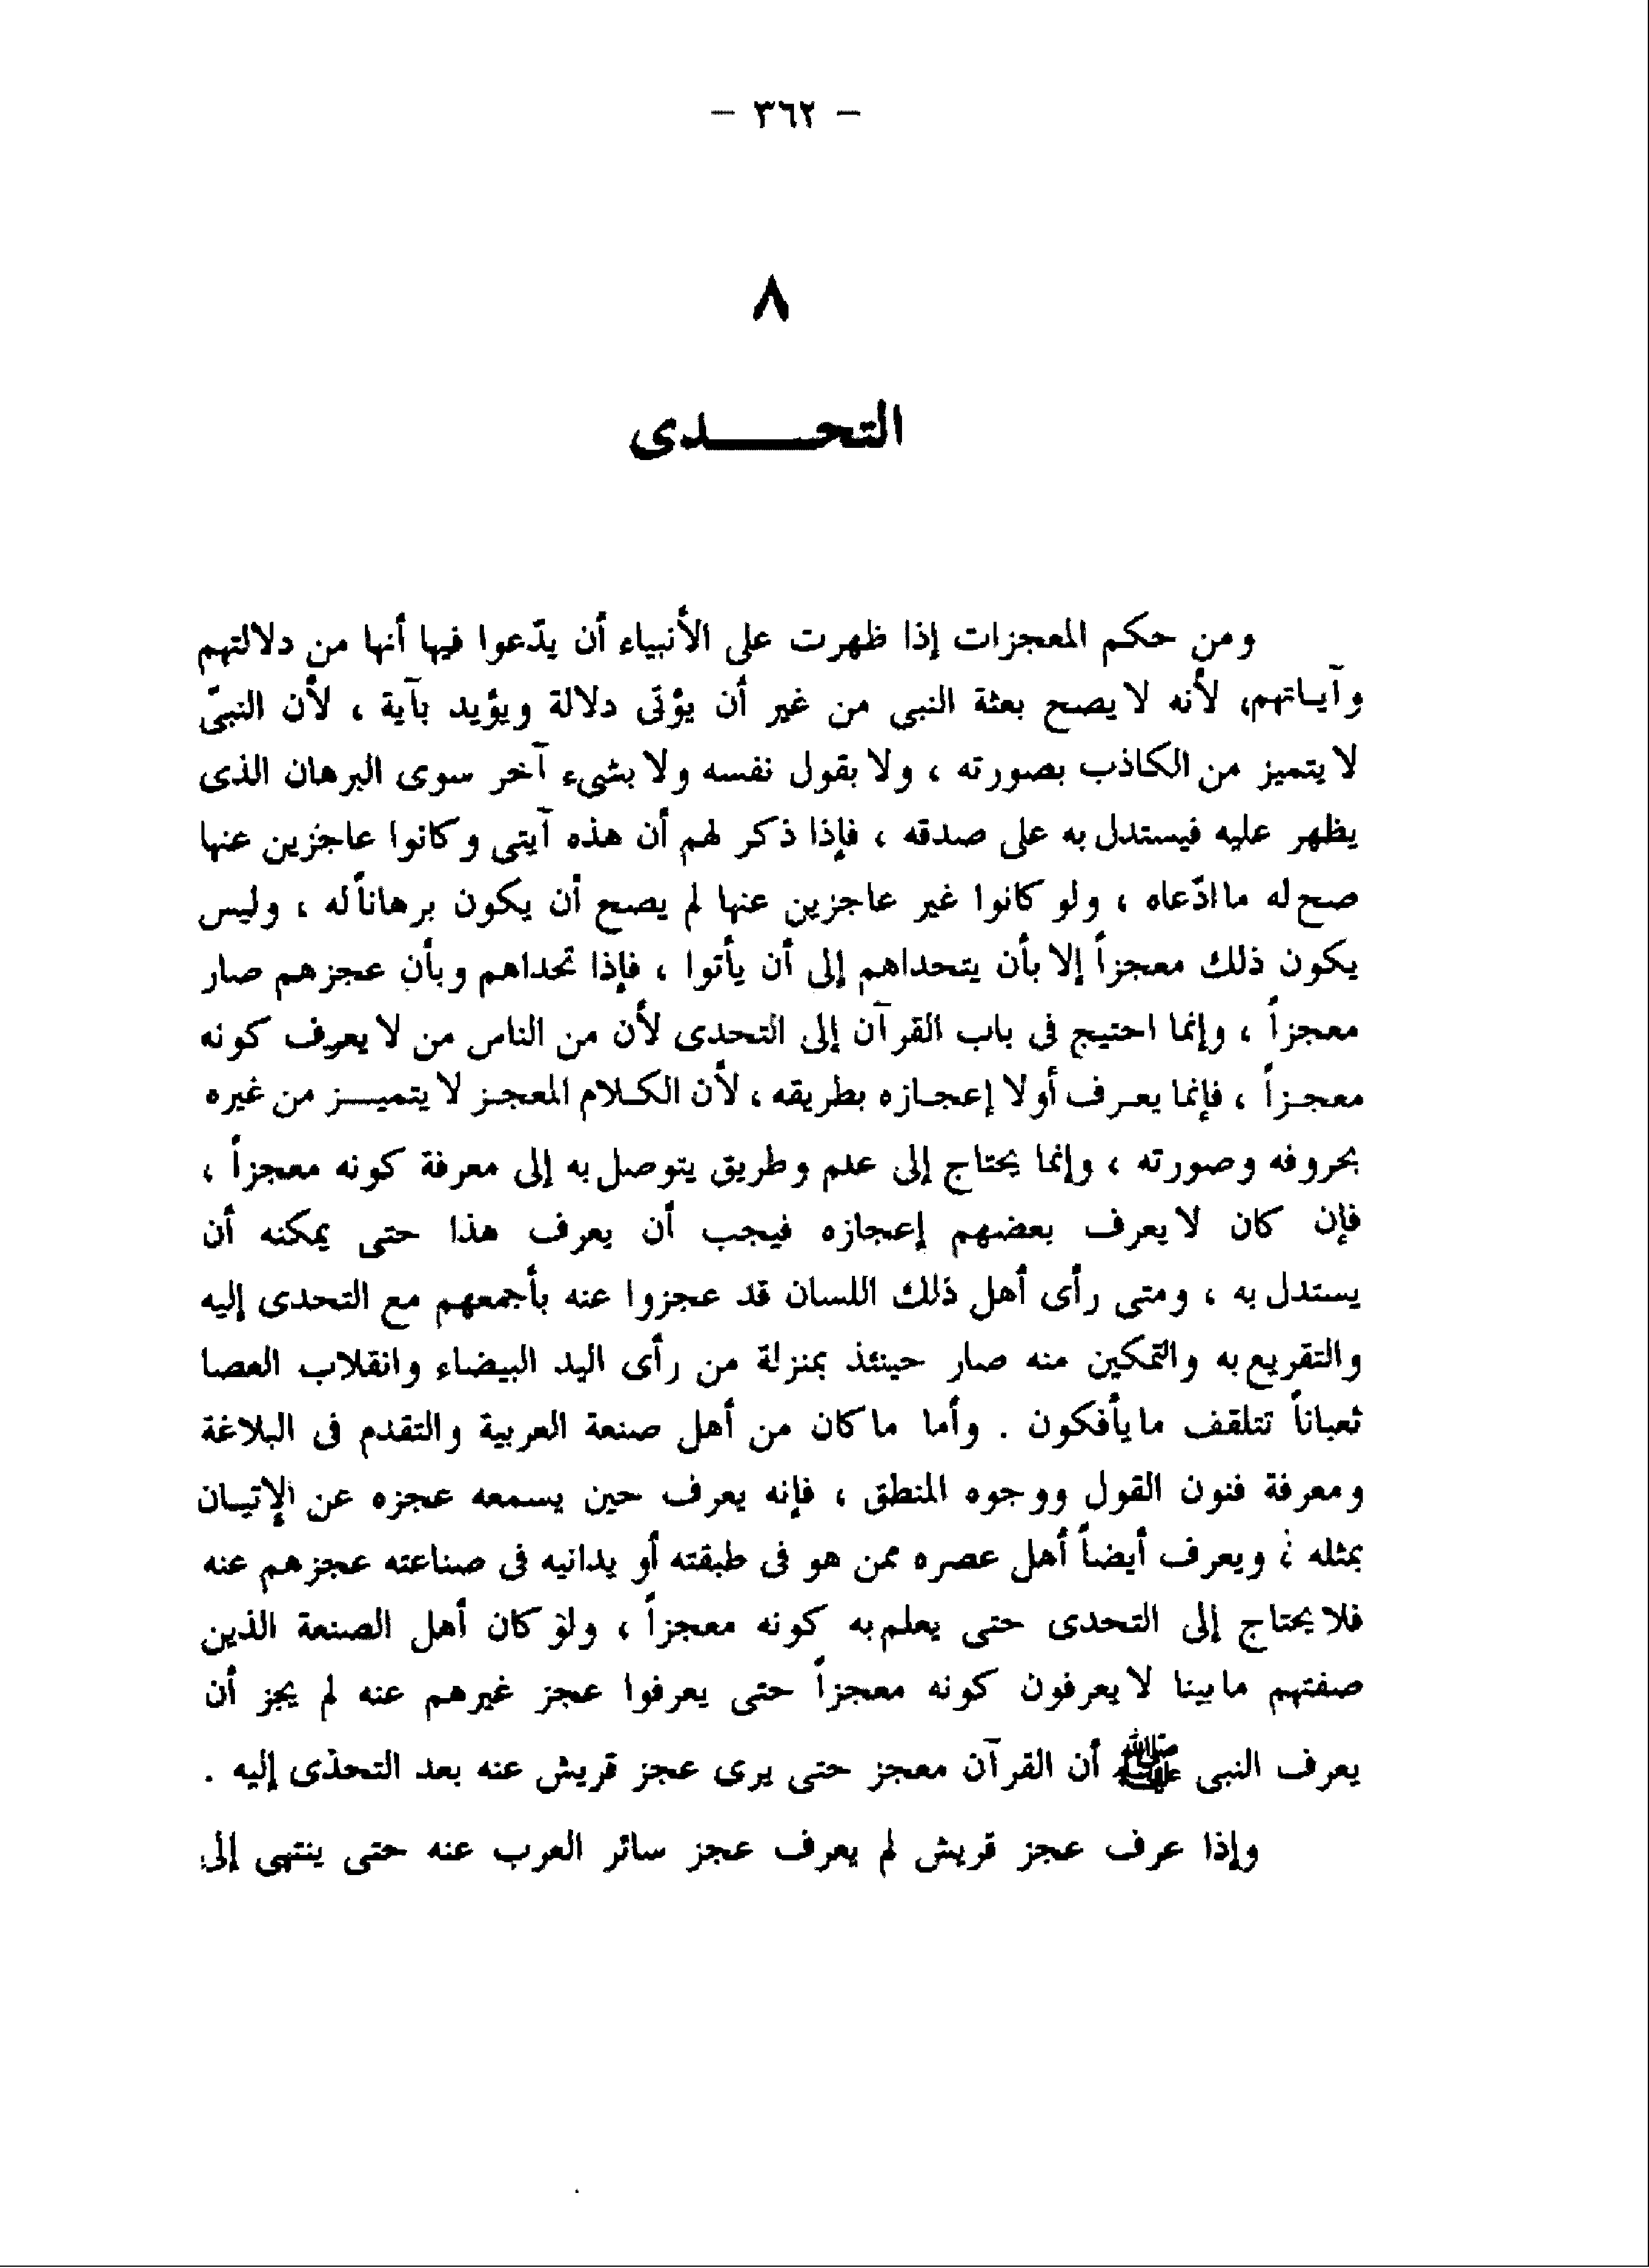 - ٣٦٢ -
٨
التحـــــدى
ومن حكم المعجزات إذا ظهرت على الأنبياء أن يدّعوا فيها أنها من دلالتهم
وآيـاتهم، لأنه لا يصح بعثة النبى من غير أن يؤتى دلالة ويؤيد بآية ، لأن النبىّ
لا يتميز من الكاذب بصورته ، ولا بقول نفسه ولا بشىء آخر سوى البرهان الذى
يظهر عليه فيستدل به على صدقه ، فإذا ذكر لهم أن هذه آيتى وكانوا عاجزين عنها
صح له ما ادّعاه ، ولو كانوا غير عاجزين عنها لم يصح أن يكون برهاناً له ، وليس
يكون ذلك معجزاً إلا بأن يتحداهم إلى أن يأتوا ، فإذا تحداهم وبأن عجزهم صار
معجزاً ، وإنما احتيج فى باب القرآن إلى التحدى لأن من الناس من لا يعرف كونه
معجـزاً ، فإنما يعـرف أولا إعجـازه بطريقه ، لأن الكـلام المعجـز لا يتميـــز من غيره
بحروفه وصورته ، وإنما يحتاج إلى علم وطريق يتوصل به إلى معرفة كونه معجزاً ،
فإن كان لا يعرف بعضهم إعجازه فيجب أن يعرف هذا حتى يمكنه أن
يستدل به ، ومتى رأى أهل ذلك اللسان قد عجزوا عنه بأجمعهم مع التحدى إليه
والتقريع به والتمكين منه صار حينئذ بمنزلة من رأى اليد البيضاء وانقلاب العصا
ثعباناً تتلقف ما يأفكون . وأما ما كان من أهل صنعة العربية والتقدم فى البلاغة
ومعرفة فنون القول ووجوه المنطق ، فإنه يعرف حين يسمعه عجزه عن الإتيـان
بمثله ؛ ويعرف أيضاً أهل عصره ممن هو فى طبقته أو يدانيه فى صناعته عجزهم عنه
فلا يحتاج إلى التحدى حتى يعلم به كونه معجزاً ، ولو كان أهل الصنعة الذين
صفتهم ما بينا لا يعرفون كونه معجزاً حتى يعرفوا عجز غيرهم عنه لم يجز أن
يعرف النبى ﷺ أن القرآن معجز حتى يرى عجز قريش عنه بعد التحدّى إليه .
وإذا عرف عجز قريش لم يعرف عجز سائر العرب عنه حتى ينتهى إلى